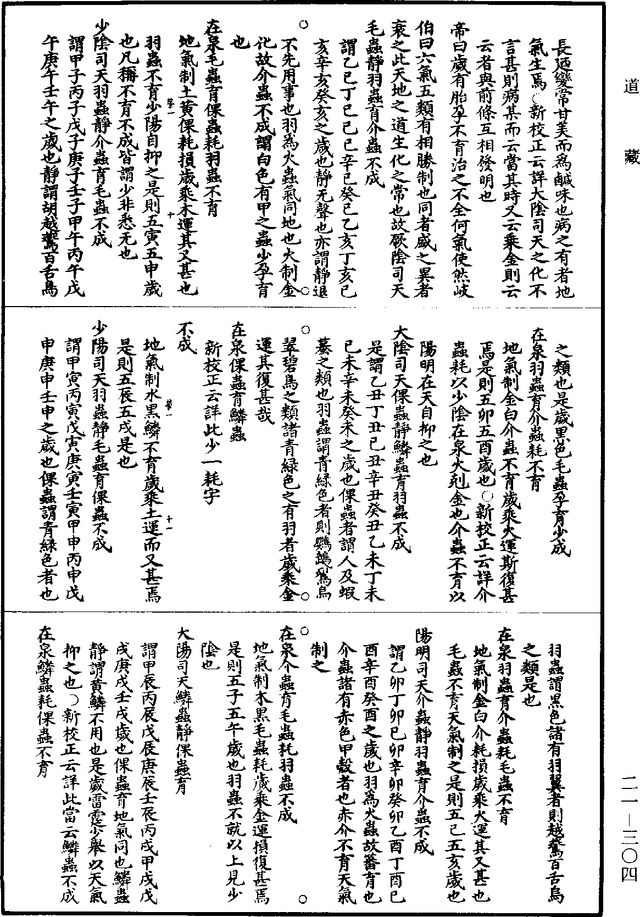 道藏
長迺變常甘美而為鹹味也病之有者地
氣生焉○新校正云詳太陰司天之化不
言甚則病某而云當其時又云乘金則云
云者與前條互相發明也
帝曰歲有胎孕不育治之不全何氣使然岐
伯曰六氣五類有相勝制也同者盛之異者
衰之此天地之道生化之常也故厥陰司天
毛蟲靜羽蟲育介蟲不成
謂乙巳丁巳己巳辛巳癸巳乙亥丁亥己
亥辛亥癸亥之歲也靜无聲也亦謂靜退
不先用事也羽為火蟲氣同地也火制金
化故介蟲不成謂白色有甲之蟲少孕育
也
在泉毛蟲育倮蟲耗羽蟲不育
地氣制土黃倮耗損歲乘木運其又甚也
羽蟲不育少陽自抑之是則五寅五申歲
也凡稱不育不成皆謂少非悉无也
少陰司天羽蟲靜介蟲育毛蟲不成
謂甲子丙子戊子庚子壬子甲午丙午戊
午庚午壬午之歲也靜謂胡越鷰百舌鳥
之類也是歲黑色毛蟲孕育少成
在泉羽蟲育介蟲耗不育
地氣制金白介蟲不育歲乘火運斯復甚
焉是則五卯五酉歲也○新校正云詳介
蟲耗以少陰在泉火剋金也介蟲不育以
陽明在天自抑之也
太陰司天倮蟲靜鱗蟲育羽蟲不成
是謂乙丑丁丑己丑辛丑癸丑乙未丁未
己未辛未癸未之歲也倮蟲者謂人及蝦
蟇之類也羽蟲謂青綠色者則鸚鵡鴷鳥
翠碧鳥之類諸青綠色之有羽者歲乘金
運其復甚哉
在泉倮蟲育鱗蟲
新校正云詳此少一耗字
不成
地氣制水黑鱗不育歲乘土運而又甚焉
是則五辰五戌是也
少陽司天羽蟲靜毛蟲育倮蟲不成
謂甲寅丙寅戊寅庚寅壬寅甲申丙申戊
申庚申壬申之歲也倮蟲謂青綠色者也
羽蟲謂黑色諸有羽翼者則越鷰百舌鳥
之類是也
在泉羽蟲育介蟲耗毛蟲不育
地氣制金白介耗損歲乘火運其又甚也
毛蟲不育天氣制之是則五巳五亥歲也
陽明司天介蟲靜羽蟲育介蟲不成
謂乙卯丁卯己卯辛卯癸卯乙酉丁酉己
酉辛酉癸酉之歲也羽為火蟲故蕃育也
介蟲諸有赤色甲殼者也赤介不育天氣
制之
在泉介蟲育毛蟲耗羽蟲不成
地氣制木黑毛蟲耗歲乘金運損復甚焉
是則五子五午歲也羽蟲不就以上見少
陰也
太陽司天鱗蟲靜倮蟲育
謂甲辰丙辰戊辰庚辰壬辰甲戌丙戌戊
戌庚戌壬戌歲也倮蟲育地氣同也鱗蟲
靜謂黃鱗不用也是歲雷霆少舉以天氣
抑之也○新校正云詳此當云鱗蟲不成
在泉鱗蟲耗倮蟲不育
二一－三〇四